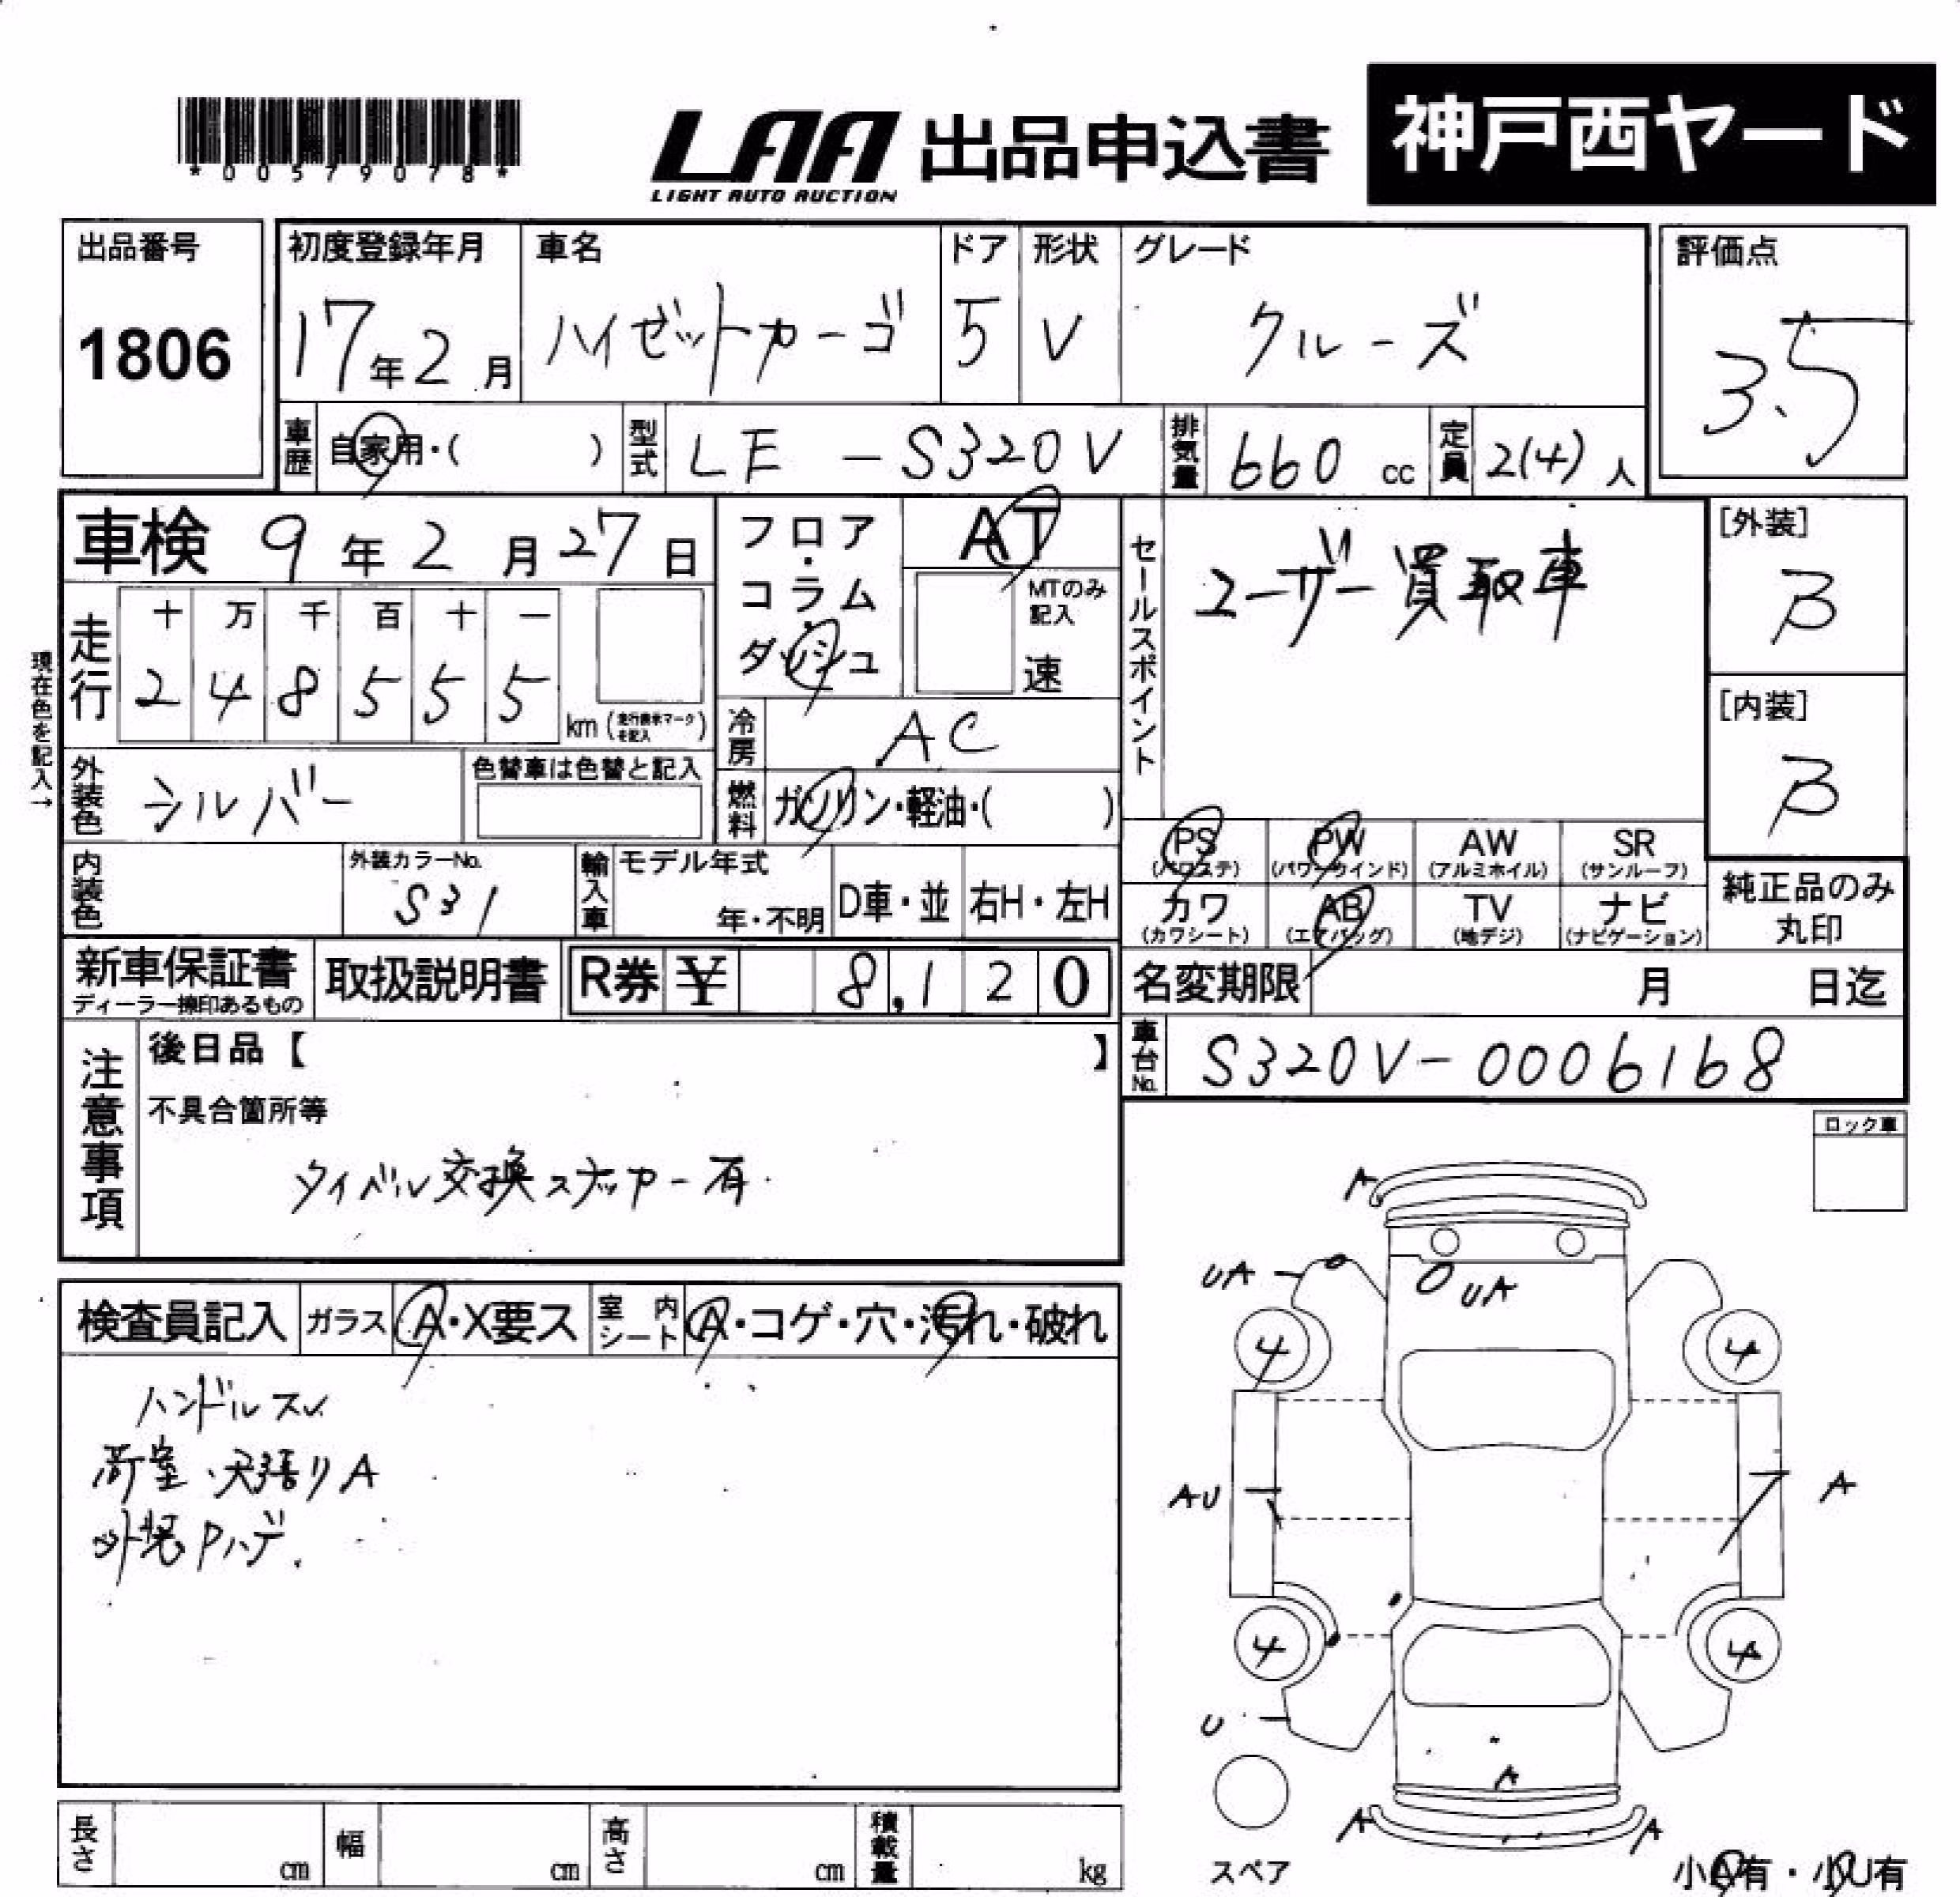 *00579078*
LAA
LIGHT AUTO AUCTION
出品申込書
神戸西ヤード
出品番号
1806
初度登録年月
17年2月
車名
ハイゼットカーゴ
ドア
5
形状
V
グレード
クルーズ
評価点
3.5
車歴
自家用・( )
型式
LE-S320V
排気量
660 cc
定員
2(4)人
車検 9年2月27日
フロア・コラム・ダッシュ
AT
MTのみ記入
速
セールスポイント
ユーザー買取車
[外装]
B
[内装]
B
現在色を記入→
走行
十 万 千 百 十 一
2 4 8 5 5 5
km (走行表示マークを記入)
冷房
AC
燃料
ガソリン・軽油・( )
外装色
シルバー
色替車は色替と記入
内装色
外装カラーNo.
S31
輸入車
モデル年式
年・不明
D車・並
右H・左H
PS
(パワステ)
PW
(パワーウインド)
AW
(アルミホイル)
SR
(サンルーフ)
カワ
(カワシート)
AB
(エアバッグ)
TV
(地デジ)
ナビ
(ナビゲーション)
純正品のみ
丸印
新車保証書
ディーラー捺印あるもの
取扱説明書
R券 ¥ 8,120
名変期限 月 日迄
車台No.
S320V-0006168
注意事項
後日品【 】
不具合箇所等
タイベル交換ステッカー有
ロック車
検査員記入
ガラス
A・X要ス
室内シート
A・コゲ・穴・汚れ・破れ
ハンドルスレ
荷室、天張りA
外装Pハゲ.
A
UA
UA
4
4
AU
A
4
4
U
A
A
A
スペア
小A有・小U有
長さ cm
幅 cm
高さ cm
積載量 kg